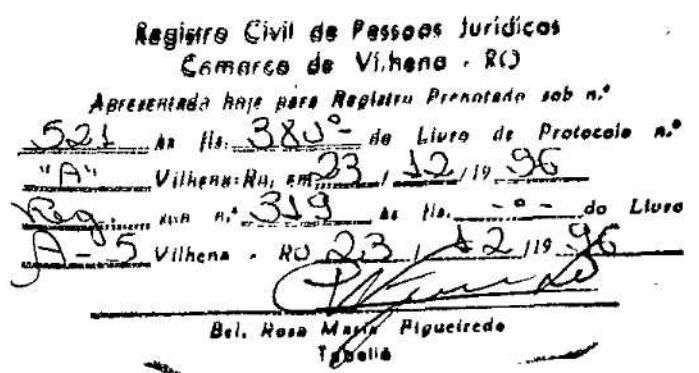 Registro Civil de Pessoas Jurídicas
Comarca de Vilhena - RO
Apresentada hoje para Registro Prenotado sob n.º
521 às fls. 380º- do Livro de Protocolo n.º
"A" Vilhena-Ro, em 23 / 12 / 19 96
Reg. sub n.º 319 às fls. -o- do Livro
A-5 Vilhena - RO 23 / 12 / 19 96
Bel. Rosa Maria Figueiredo
Tabeliã